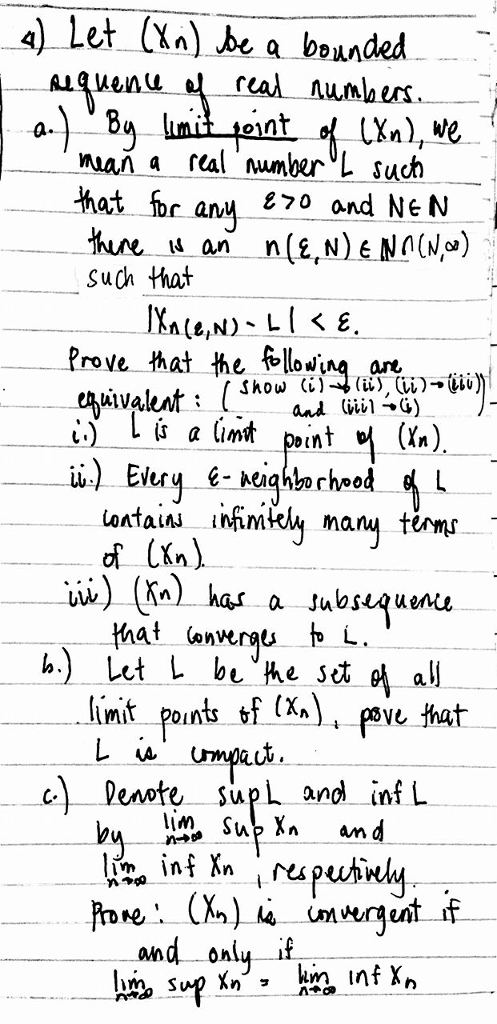 4) Let (Xn) be a bounded
sequence of real numbers.
a.) By limit point of (Xn), we
mean a real number L such
that for any ε>0 and N∈ℕ
there is an n(ε,N) ∈ ℕ∩(N,∞)
such that
|Xn(ε,N) - L| < ε.
Prove that the following are
equivalent : ( show (i)→(ii), (ii)→(iii)
and (iii)→(i) )
i.) L is a limit point of (Xn).
ii.) Every ε-neighborhood of L
contains infinitely many terms
of (Xn).
iii) (Xn) has a subsequence
that converges to L.
b.) Let L be the set of all
limit points of (Xn), prove that
L is compact.
c.) Denote sup L and inf L
by lim n→∞ sup Xn and
lim n→∞ inf Xn , respectively.
Prove : (Xn) is convergent if
and only if
lim n→∞ sup Xn = lim n→∞ inf Xn